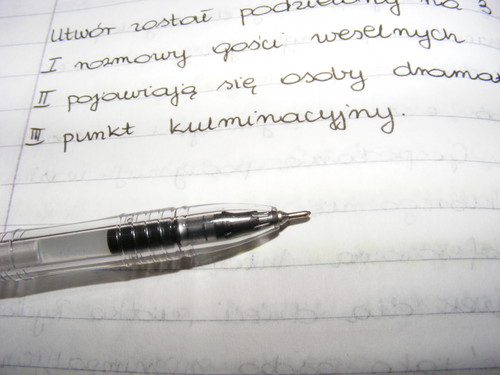 Utwór został podzielony na 3
I rozmowy gości weselnych
II pojawiają się osoby dramat
III punkt kulminacyjny.